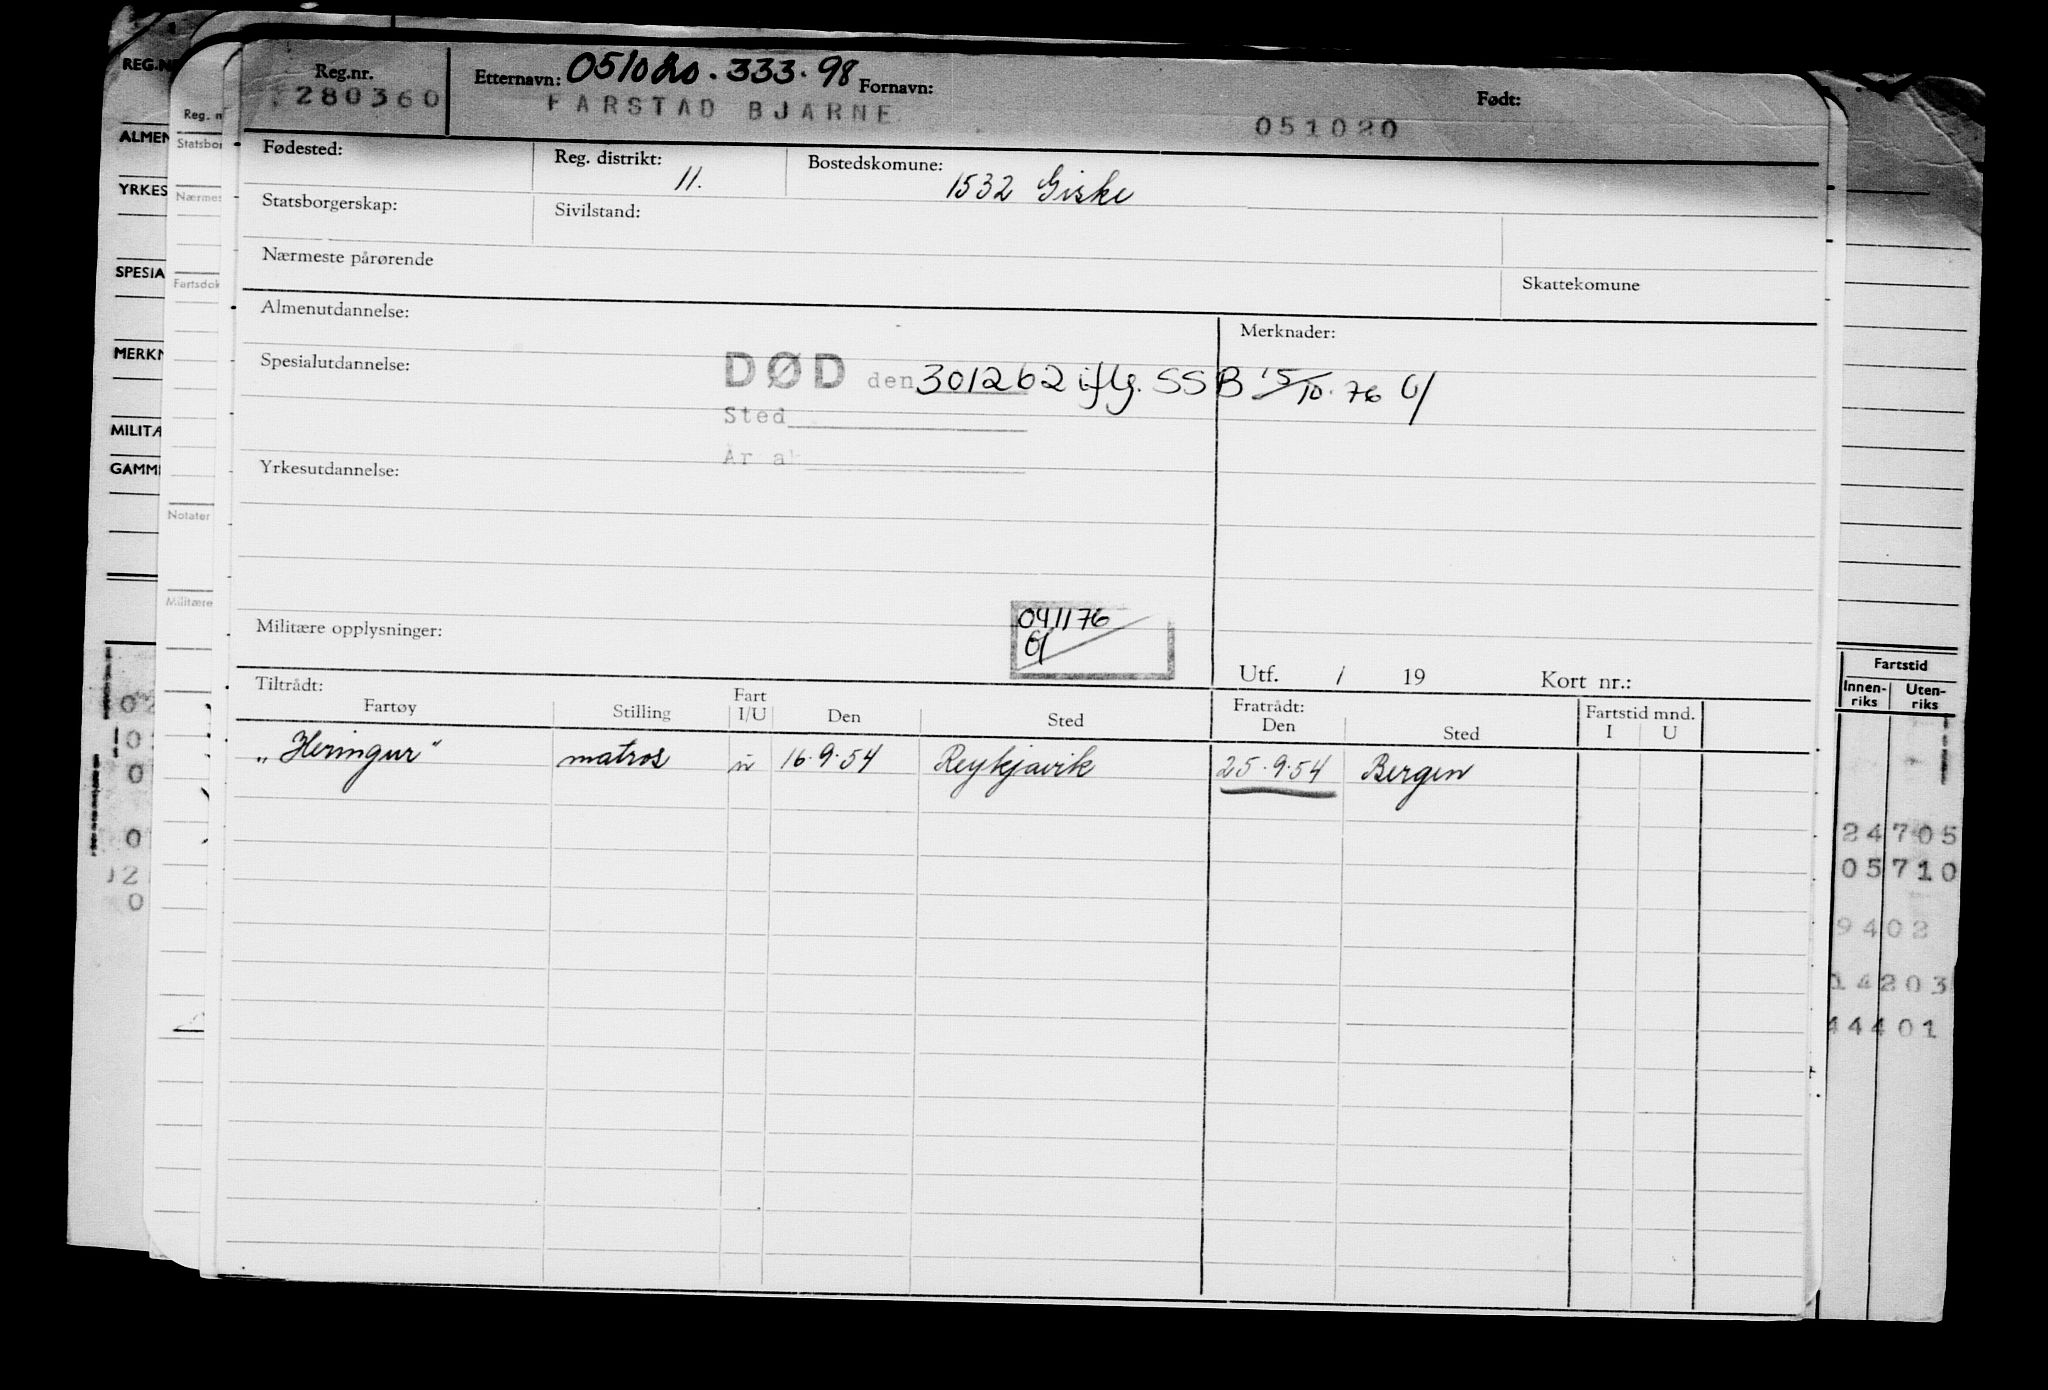 Reg.nr. Etternavn: 051020.333.98 Fornavn: Født:
280360 FARSTAD BJARNE 051020
Fødested: Reg. distrikt: 11. Bostedskomune: 1532 Giske
Statsborgerskap: Sivilstand:
Nærmeste pårørende Skattekomune
Almenutdannelse: Merknader:
Spesialutdannelse: DØD den 301262 iflg. SSB 15/10.76
Sted
Yrkesutdannelse: År
041176
Militære opplysninger:
Utf. / 19 Kort nr.:
Tiltrådt: Fratrådt: Fartstid mnd.
Fartøy Stilling Fart I/U Den Sted Den Sted I U
„Heringur“ matros u 16.9.54 Reykjavik 25.9.54 Bergen
REG.N
ALMEN
YRKES
SPESIA
MERKN
MILITÆ
GAMM
Reg. n
Statsbor
Nærmes
Fartsdok
Notater
Militære
Fartstid
Innenriks Utenriks
24705
05710
9402
14203
44401